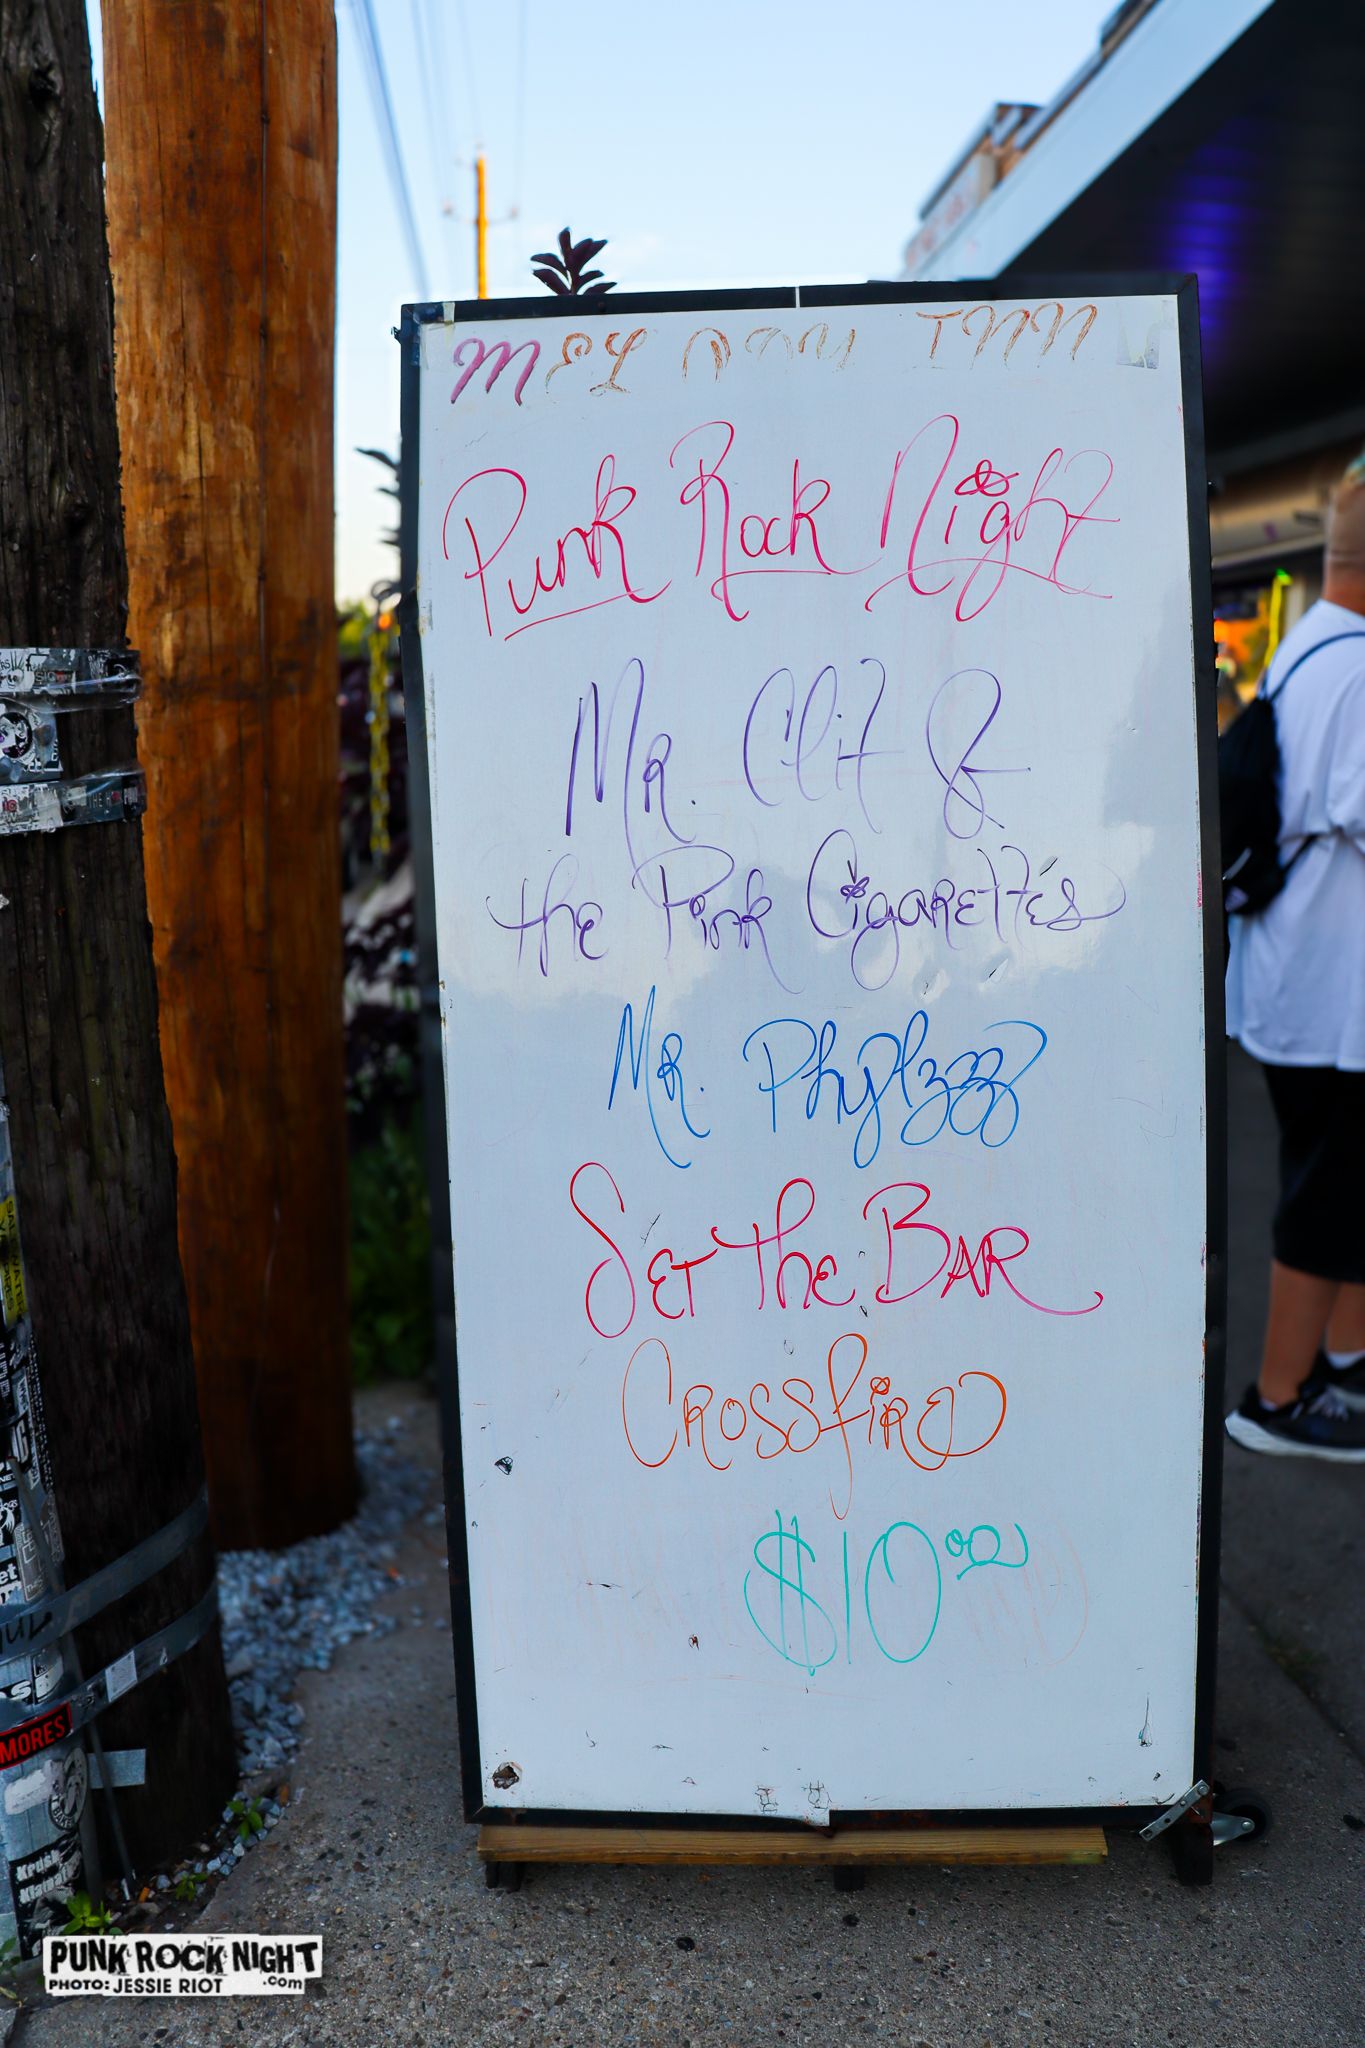 Punk Rock Night
Mr. Clit &
the Pink Cigarettes
Mr. Phylzzz
Set the Bar
Crossfire
$10.00
MORES
PUNK ROCK NIGHT
.com
PHOTO: JESSIE RIOT